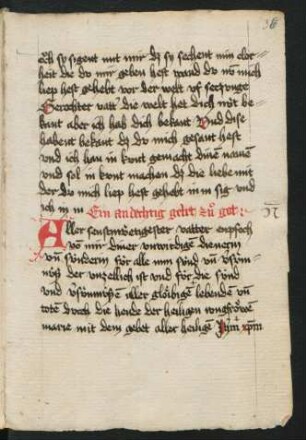 38
och sy sigent mit mir dz sy sechent min clor
heit die du mir geben hest wand du vō mich
liep hest gehebt vor der welt vf setzunge
Gerechter vatt die welt het dich nit be
kant aber ich hab dich bekant Vnd dise
habent bekant dz du mich gesant hest
vnd ich han in kunt gemacht dinen namen
vnd sol in kunt machen dz die liebe mit
der du mich liep hest gehebt in in sig vnd
ich in in Ein andechtig gebet zů got
Aller senftmůtigester vatter enpfach
vō mir diner vnwirdigen dienerin
vn̄ sünderin für alle min sünd vn̄
der vnzellich ist vnd für die sünd
vnd aller glöibigen lebenden vn̄
tote durch die hende der heiligen
marie mit dem gebet aller heilige Ihm xpm